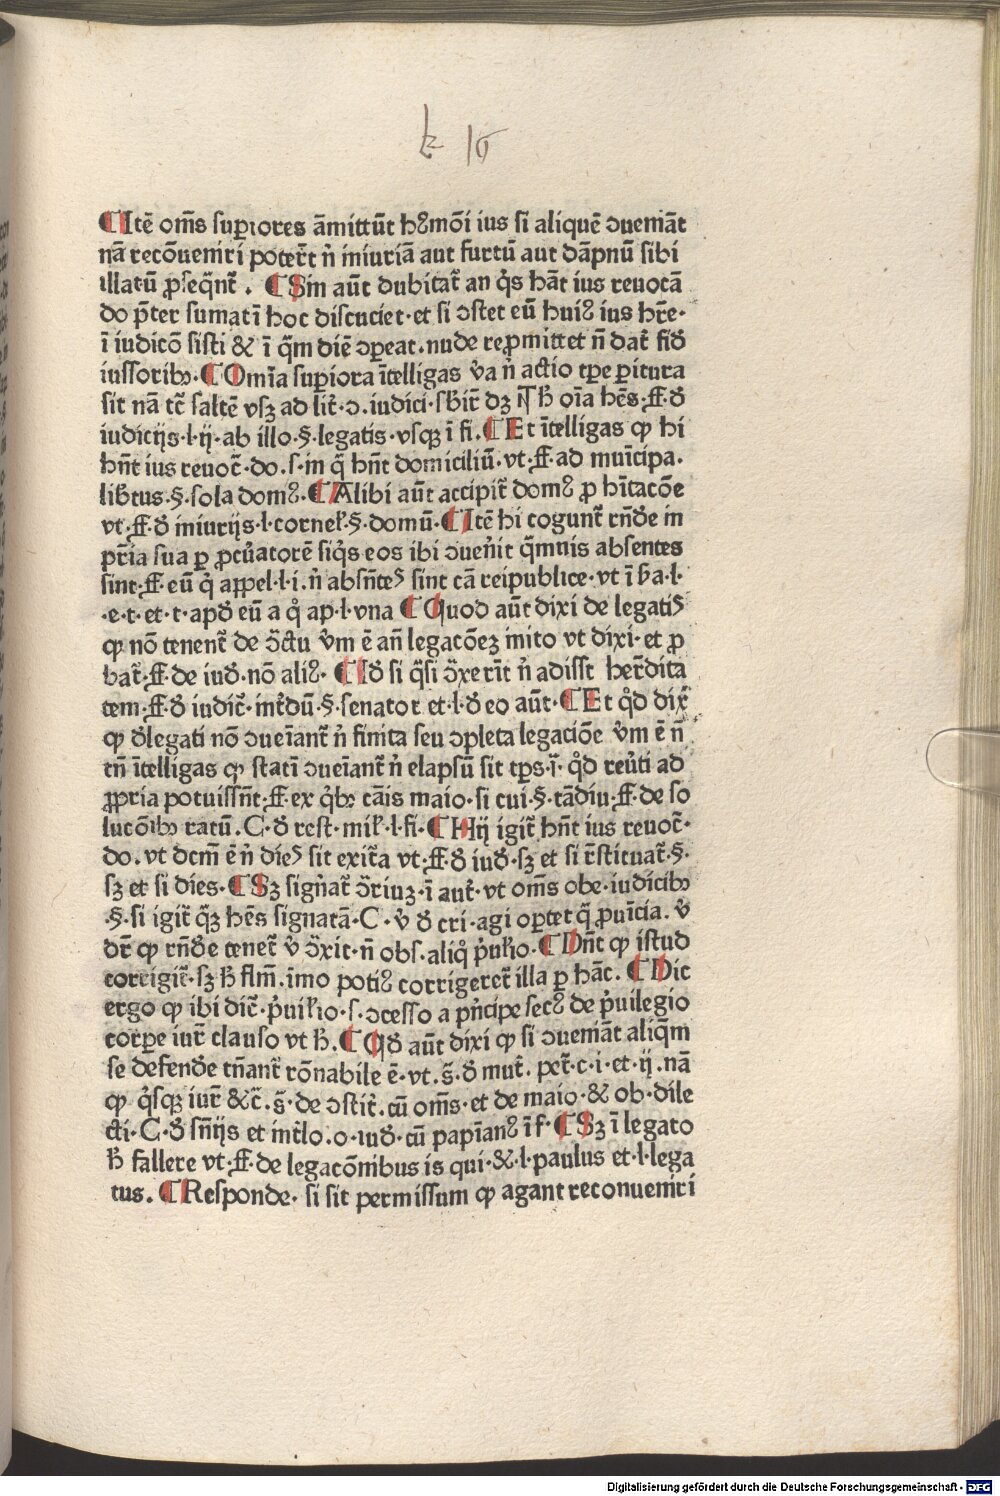 ¶Itē om̄s superiores āmittūt hꝰmōi ius si aliquē ɔueniāt
nā recōueniri poter̄t ñ iniuriā aut furtū aut dāpnū sibi
illatū ꝓseq̄nt᷑. ¶Sin aūt dubitat᷑ an q̇s hāt ius reuocā
do p̄ter sumatī hoc discuciet·et si ɔstet eū huiꝰ ius hr̄e·
ī iudicō sisti & ī q̄m diē ɔpeat·nude repromittet ñ dat᷑ fid̄
iussorib⁊.¶Omīa superiora ītelligas v̄a ñ actio tp̄e peritura
sit nā tc̄ saltē vsꝫ ad lit᷑·ɔ·iudici·sbīt᷑ dꝫ ħ oīa hēs·ff·d̄
iudicijs·l·ij·ab illo·§·legatis·vsqꝫ ī fi.¶Et ītelligas ꝙ hi
hn̄t ius reuoc̄·do·s·in q̄ hn̄t domiciliū·vt·ff·ad munīcipa·
lib̄tus·§·sola domꝰ·¶Alibi aūt accipit᷑ domꝰ ꝓ hītacōe
vt·ff·d̄ iniurijs·l·corneł·§·domū·¶Itē hi cogunt᷑ rn̄d̄e in
pr̄ia sua ꝑ ꝓcu̇atorē siq̇s eos ibi ɔuen̄it q̄muis absentes
sint·ff·eū q̇ appel·l·i·ñ absn̄tes sint cā reipublice·vt ī b̄a·l·
·e·t·et·t·apd̄ eū a q̊ ap·l·vna ¶Quod aūt dixi de legatis
ꝙ nō tenent᷑ de ɔ̄ctu v̄m ē añ legacōeꝫ inito vt dixi·et ꝓ
bat᷑·ff·de iud̄·nō aliꝰ·¶Id̄ si q̄si ɔ̄xerīt ñ adisst her̄dita
tem·ff·d̄ iudic̄·int᷑dū·§·senator et·l·d̄ eo aūt·¶Et q̊d dix̄
ꝙ d̄legati nō ɔueīant᷑ ñ finita seu ɔpleta legaciōe v̄m ē ñ
tn̄ ītelligas ꝙ statī ɔueīant᷑ ñ elapsū sit tp̄s·ī· q̊d reu̇ti ad
ꝓpria potuissn̄t·ff·ex q̇b⁊ cāis maio·si cui·§·tādiu·ff·de so
lucōib⁊ ratū.C·d̄ rest·mił·l·fi·¶Hij igit᷑ hn̄t ius reuoc̄·
do·vt dcm̄ ē ñ dies sit exit᷑a vt·ff·d̄ iud̄·sꝫ et si r̄stituat᷑·§·
sꝫ et si dies·¶Sꝫ signat᷑ ɔ̄riuꝫ·ī aut᷑·vt om̄s obe·iudicib⁊
·§·si igit᷑ q̄ꝫ hēs signatā·C·v̄ d̄ cri·agi oꝑtet q̄ ꝓuīcia·v̄
dr̄ ꝙ rn̄d̄e tenet᷑ v̄ ɔ̄xit·ñ obs·aliq̊ p̊ułio·¶Dn̄t ꝙ istud
corrigit᷑·sꝫ ħ flm̄·īmo potiꝰ corrigeret᷑ illa ꝑ hāc. ¶Dic
ergo ꝙ ibi dic̄·p̊uiłio·s·ɔcesso a pn̊cipe secꝰ de p̊uilegio
corpe iur̄ clauso vt ħ.¶Qd̄ aūt dixi ꝙ si ɔueniāt aliq̄m
se defend̄e tn̄ant᷑ rōnabile ē·vt·s̄·d̄ mut᷑·pet᷑·c·i·et·ij·nā
ꝙ q̇sqꝫ iur̄ &c̄·s̄·de ɔstit᷑·cū om̄s·et de maio·& ob·dile
cti·C·d̄ sn̄ijs et int᷑lo·o·iud̄·cū papīanꝰ īf·¶Sꝫ ī legato
ħ fallere vt·ff·de legacōnibus is qui·&·l·paulus et·l·lega
tus. ¶Responde· si sit permissum ꝙ agant reconueniri
Digitalisierung gefördert durch die Deutsche Forschungsgemeinschaft · DFG